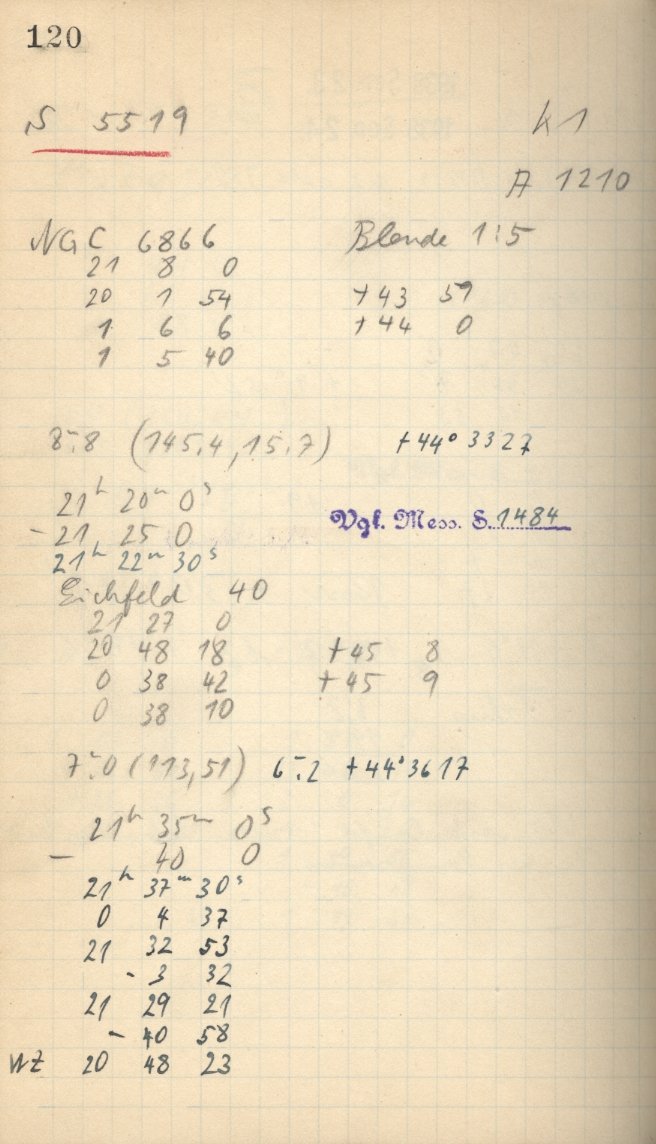 120
S 5519 K 1
A 1210
NGC 6866 Blende 1:5
21 8 0
20 1 54 +43 59
1 6 6 +44 0
1 5 40
8m.8 (145.4, 15.7) +44° 3327
21h 20m 0s
- 21 25 0 Vgl. Mess. S. 1484
21h 22m 30s
Eichfeld 40
21 27 0
20 48 18 +45 8
0 38 42 +45 9
0 38 10
7m.0 (113, 51) 6m.2 +44° 3617
21h 35m 0s
- 40 0
21h 37m 30s
0 4 37
21 32 53
- 3 32
21 29 21
- 40 58
WZ 20 48 23